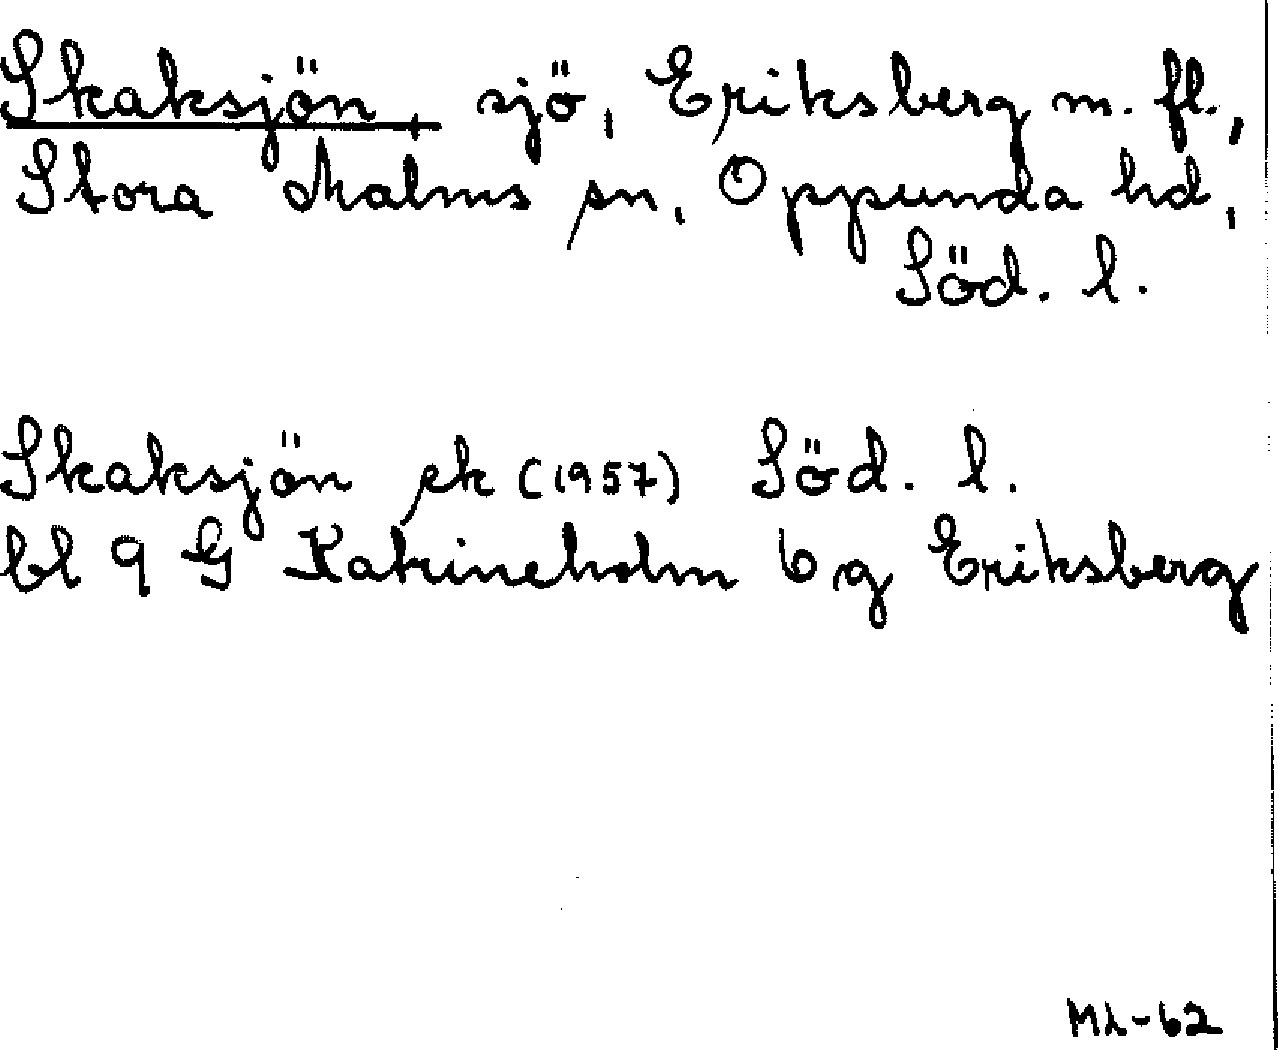 Skaksjön, sjö, Eriksberg m. fl.,
Stora Malms sn, Oppunda hd,
Söd. l.
Skaksjön ek (1957) Söd. l.
bl 9 G Katrineholm 6 g Eriksberg
ML-62